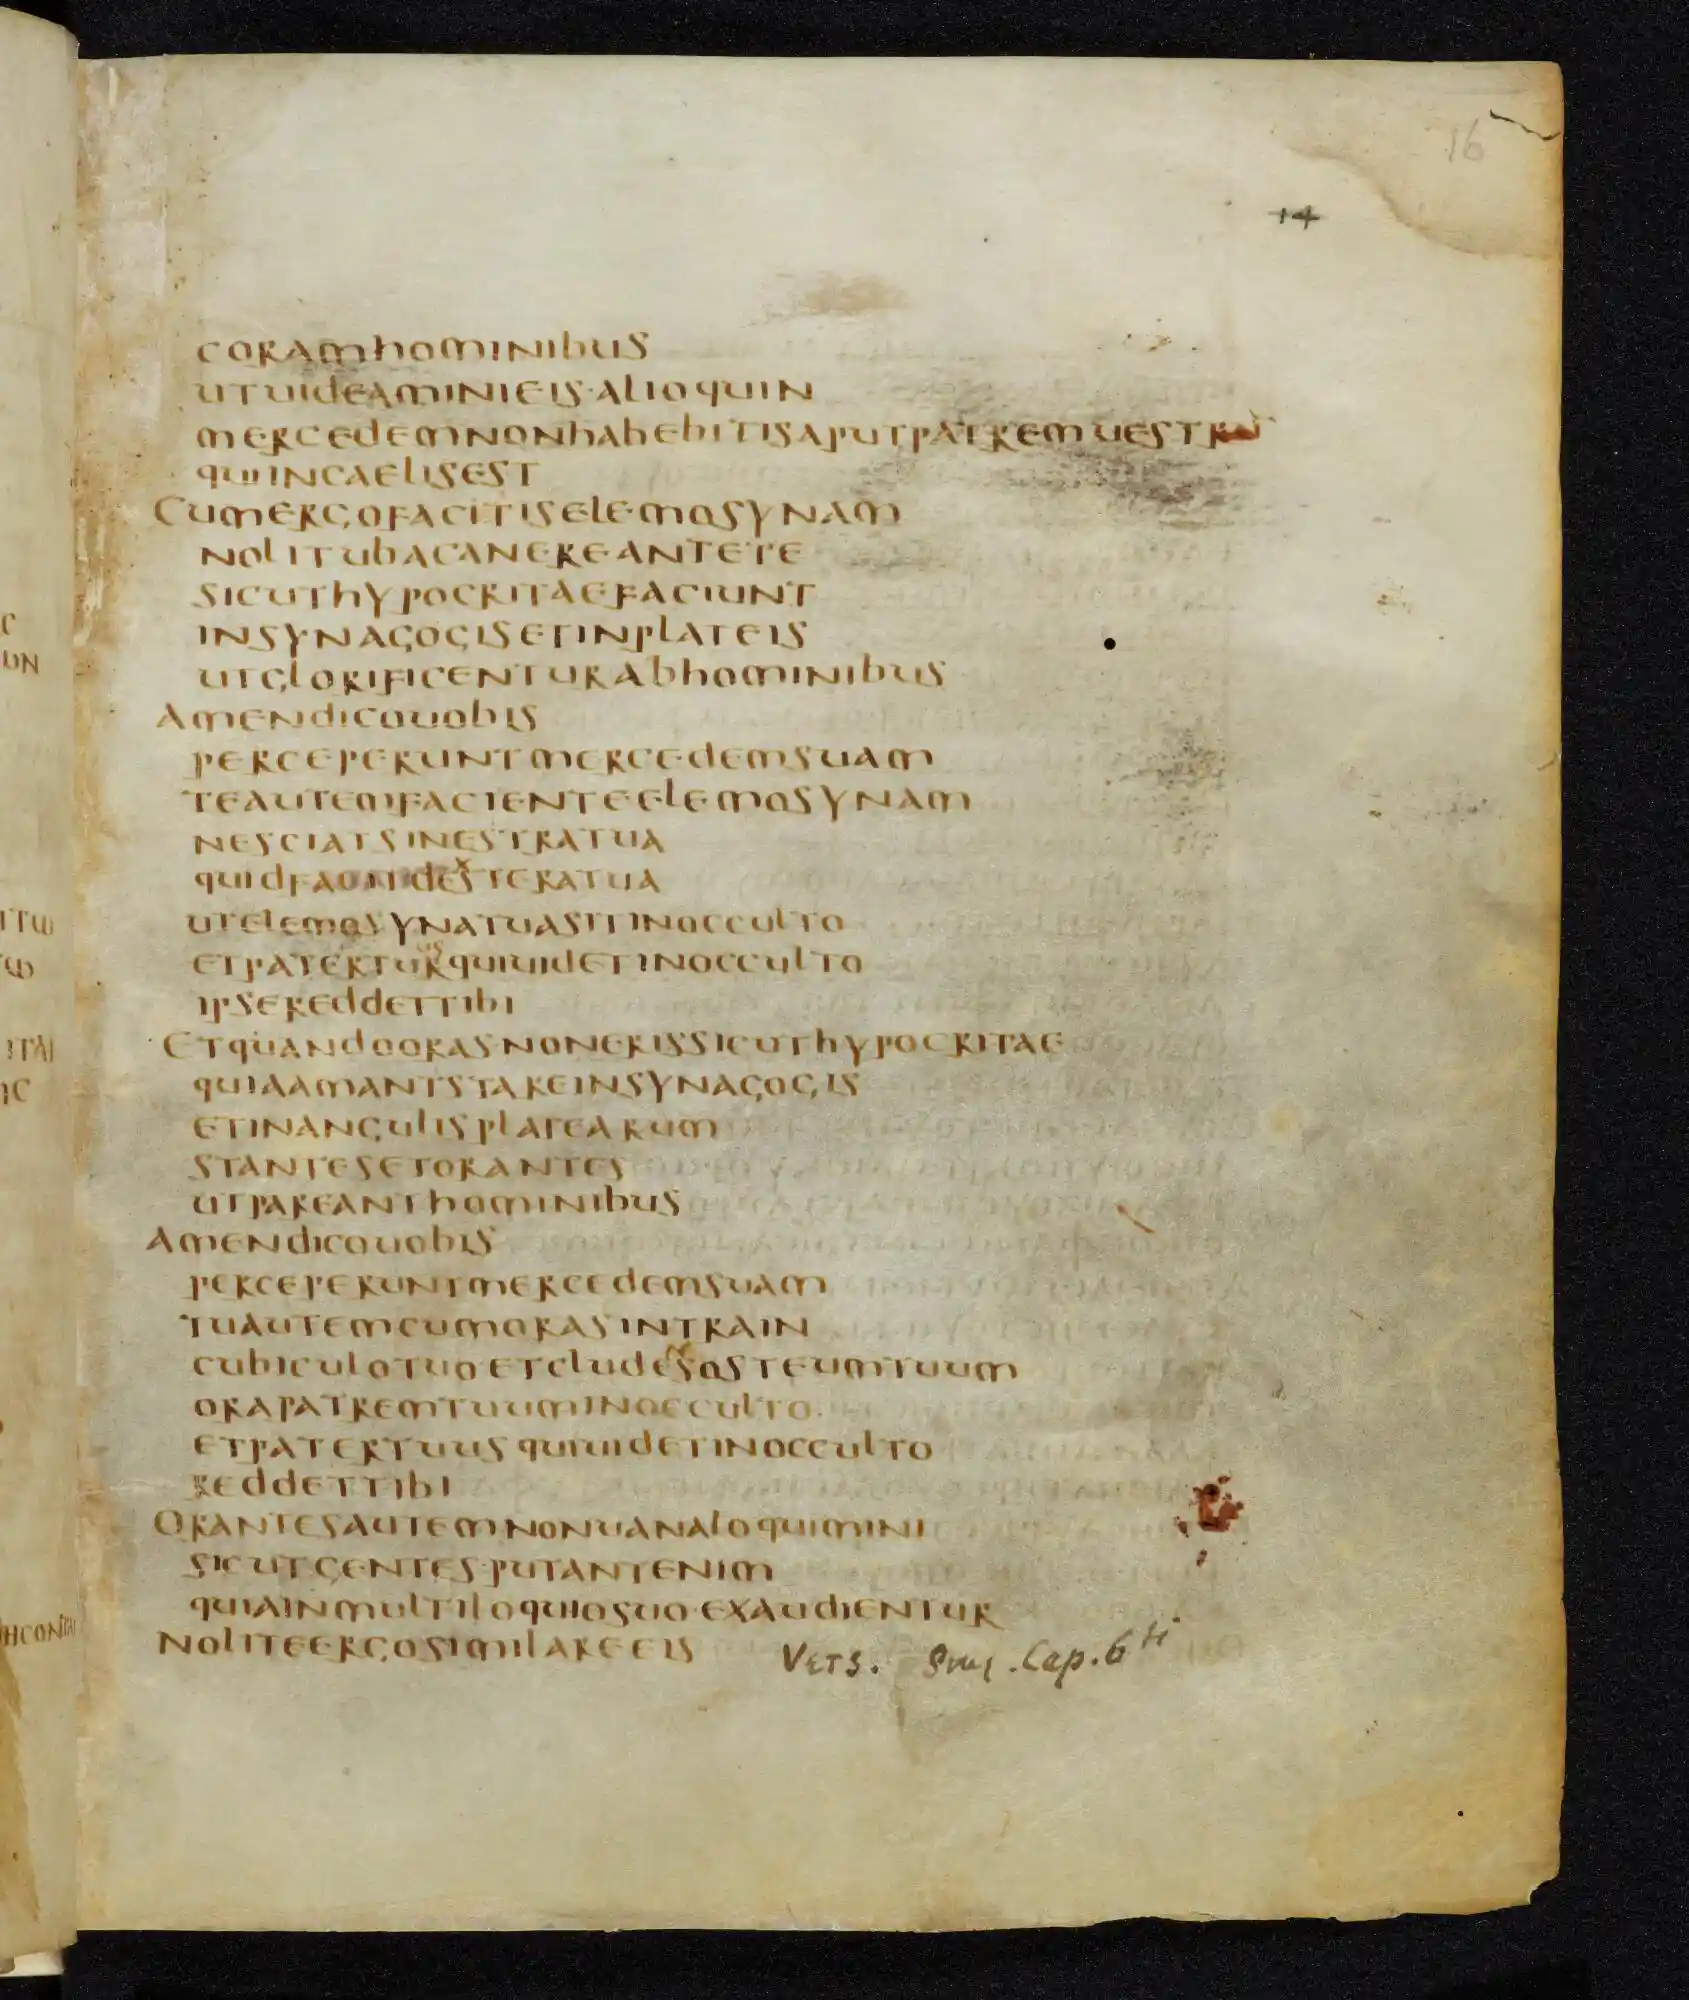 16
14
CORAMHOMINIBUS
UTUIDEAMINIEIS·ALIOQUIN
MERCEDEMNONHABEBITISAPUTPATREMUESTRU
QUIINCAELISEST
CUMERGOFACITISELEMOSYNAM
NOLITUBACANEREANTETE
SICUTHYPOCRITAEFACIUNT
INSYNAGOGISETINPLATEIS
UTGLORIFICENTURABHOMINIBUS
AMENDICOUOBIS
PERCEPERUNTMERCEDEMSUAM
TEAUTEMFACIENTEELEMOSYNAM
NESCIATSINESTRATUA
QUIDFACITDEXTERATUA
UTELEMOSYNATUASITINOCCULTO
ETPATERTUUSQUIUIDETINOCCULTO
IPSEREDDETTIBI
ETQUANDOORASNONERISSICUTHYPOCRITAE
QUIAAMANTSTAREINSYNAGOGIS
ETINANGULISPLATEARUM
STANTESETORANTES
UTPAREANTHOMINIBUS
AMENDICOUOBIS
PERCEPERUNTMERCEDEMSUAM
TUAUTEMCUMORASINTRAIN
CUBICULOTUOETCLUDESOSTEUMTUUM
ORAPATREMTUUMINOCCULTO
ETPATERTUUSQUIUIDETINOCCULTO
REDDETTIBI
ORANTESAUTEMNONUANALOQUIMINI
SICUTGENTES·PUTANTENIM
QUIAINMULTILOQUIOSUO·EXAUDIENTUR
NOLITEERGOSIMILAREEIS
Vers. Cap. 6ti